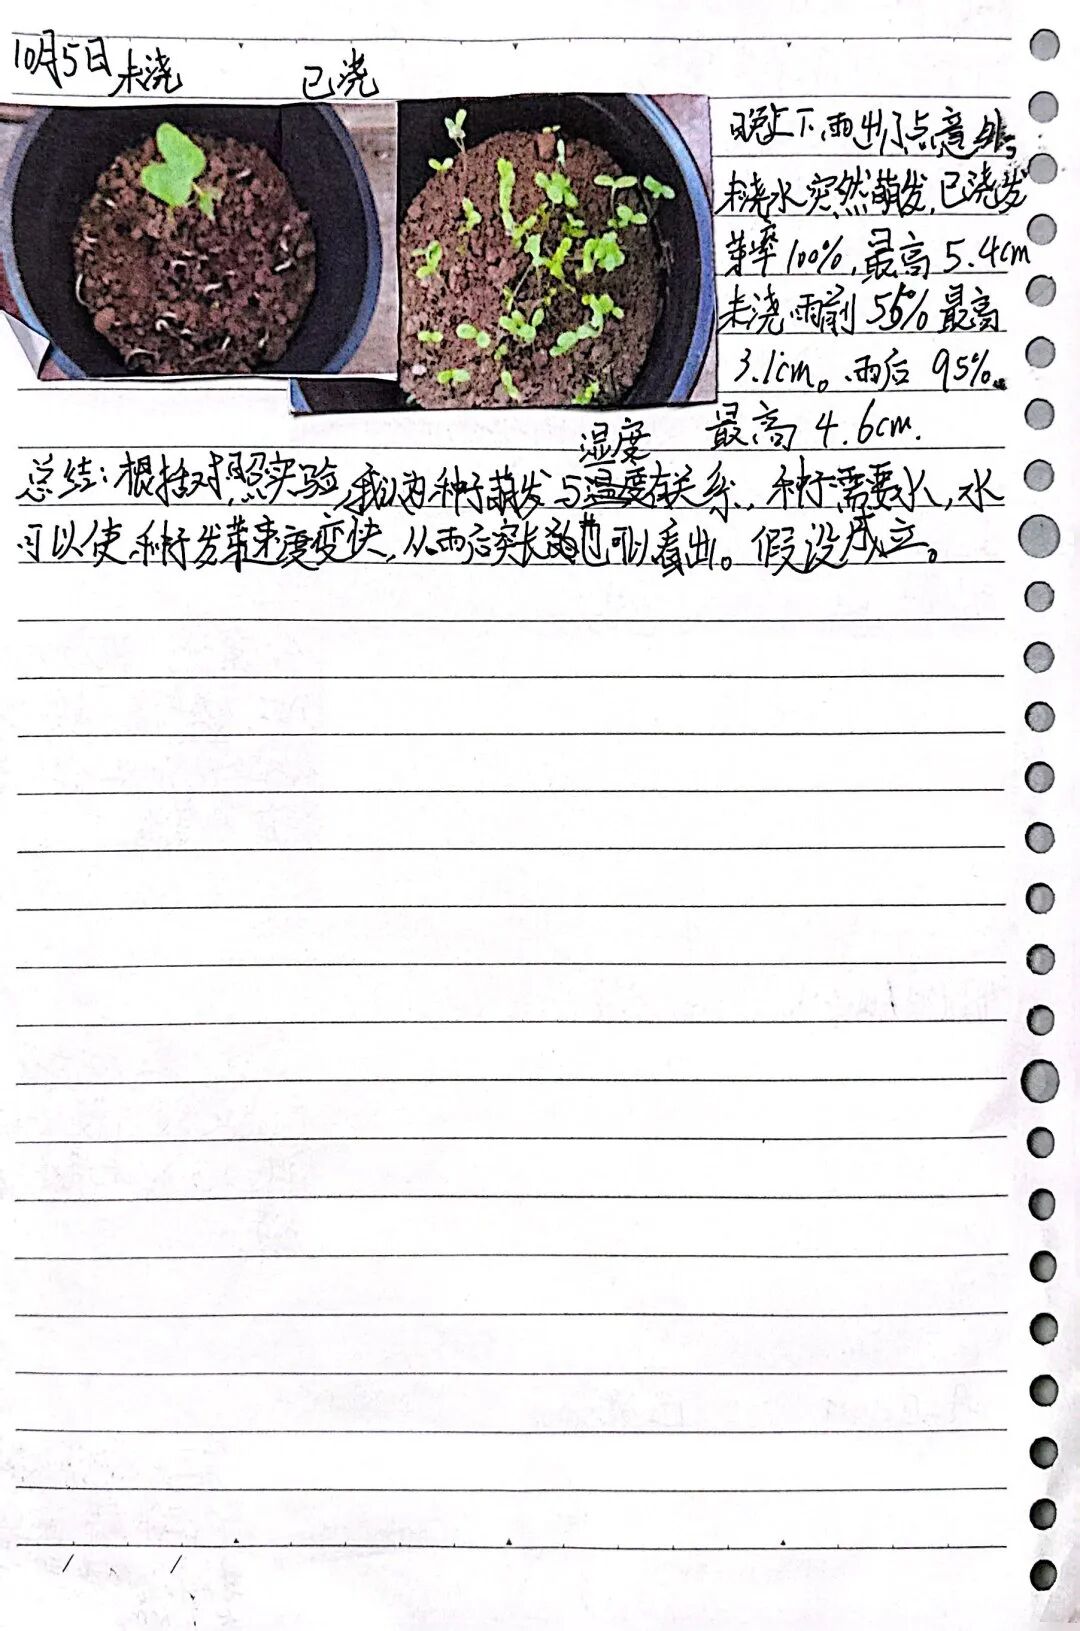 10月5日 未浇 已浇
晚上下雨出了点意外,
未浇水突然萌发,已浇发
芽率100%,最高5.4cm
未浇雨前55%最高
3.1cm。雨后95%。
最高4.6cm.
湿度
总结:根括对照实验,我认为种子萌发与温度有关系,种子需要水,水
可以使种子发芽速度变快,从雨后突长也可以看出。假设成立。